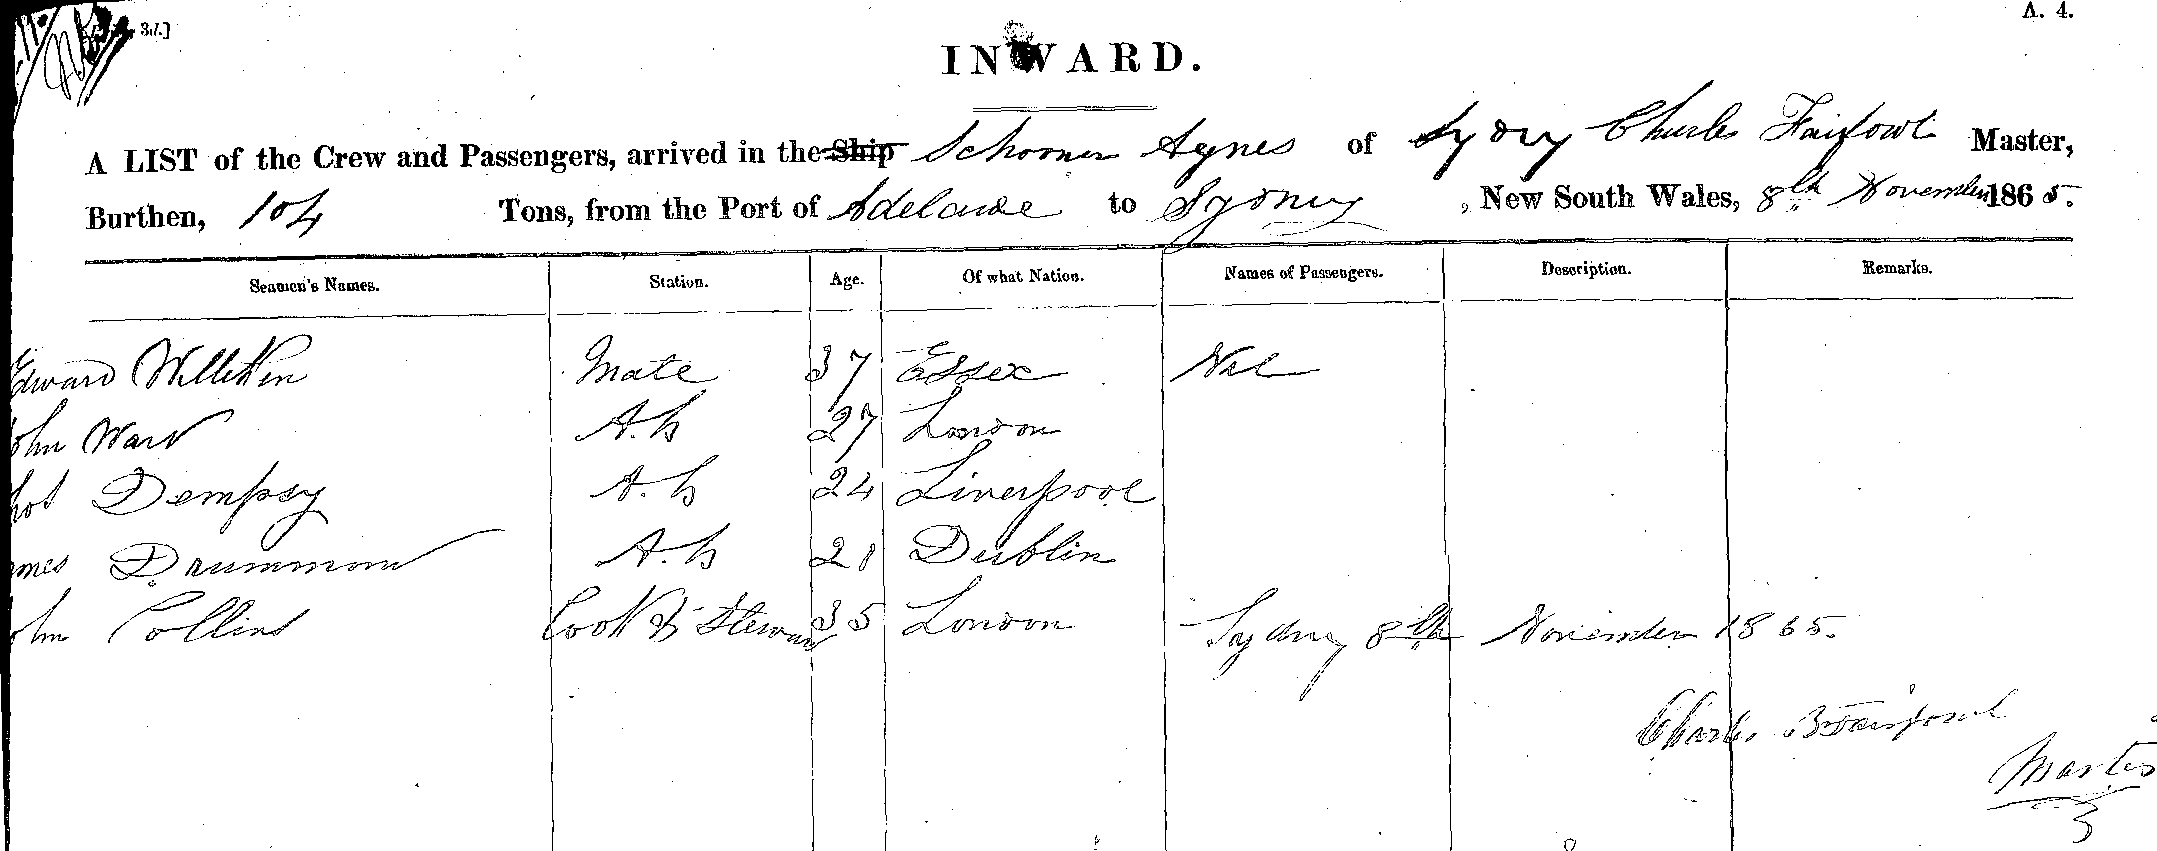 3d.]
A. 4.
INWARD.
A LIST of the Crew and Passengers, arrived in the Ship Schooner Agnes of Sydney Charles Fairfowl Master,
Burthen, 104 Tons, from the Port of Adelaide to Sydney, New South Wales, 8th November 1865.
Seamen's Names. Station. Age. Of what Nation. Names of Passengers. Description. Remarks.
Edward Milliken Mate 37 Essex Nil
John Ward A.B 27 London
Dempsy A.B 24 Liverpool
Drummond A.B 21 Dublin
John Collins Cook & Steward 35 London
Sydney 8th November 1865.
Charles B Fairfowl
Master